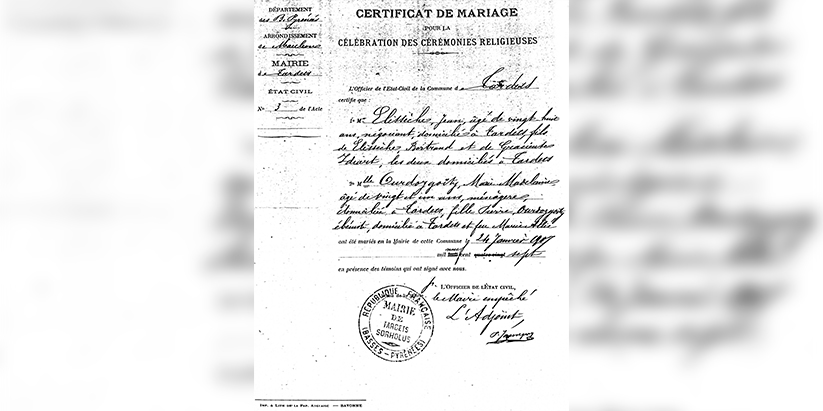 DÉPARTEMENT
des B. Pyrénées
ARRONDISSEMENT
de Mauléon
MAIRIE
de Tardets
ÉTAT CIVIL
N° 3 de l'Acte
CERTIFICAT DE MARIAGE
POUR LA
CÉLÉBRATION DES CÉRÉMONIES RELIGIEUSES
L'Officier de l'Etat-Civil de la Commune d Tardets
certifie que :
le Mr Elissiche, Jean, âgé de vingt huit
ans, négociant, domicilié à Tardets, fils
de Elissiche, Bertrand et de Gracieuse
Idiart, les deux domiciliés à Tardets
Et Mlle Curdoygoïty, Marie Madelaine
âgée de vingt et un ans, ménagère,
domiciliée à Tardets, fille Pierre, Curdoygoïty
ébénist, domicilié à Tardets et feu Marie
ont été mariés en la Mairie de cette Commune le 24 Janvier 1907
mil neuf cent quatre-vingt sept
en présence des témoins qui ont signé avec nous.
L'OFFICIER DE L'ÉTAT CIVIL,
le Maire empêché
L'Adjoint,
RÉPUBLIQUE FRANÇAISE
MAIRIE
DE
TARDETS
SORHOLUS
(BASSES-PYRÉNÉES)